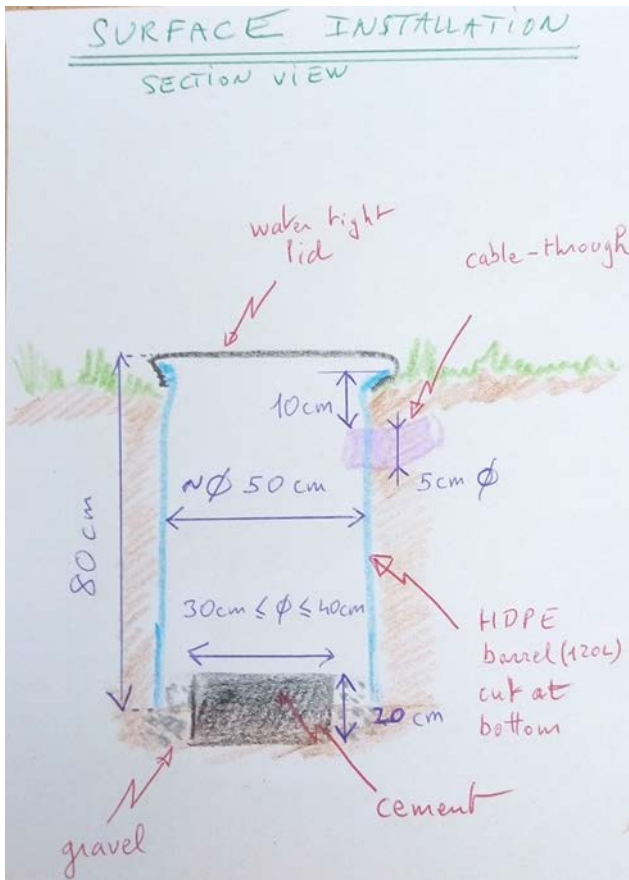 SURFACE INSTALLATION
SECTION VIEW
water tight
lid
cable-through
10cm
5cm ϕ
~ϕ 50cm
80cm
30cm ≤ ϕ ≤ 40cm
HDPE
barrel (120L)
cut at
bottom
20 cm
cement
gravel